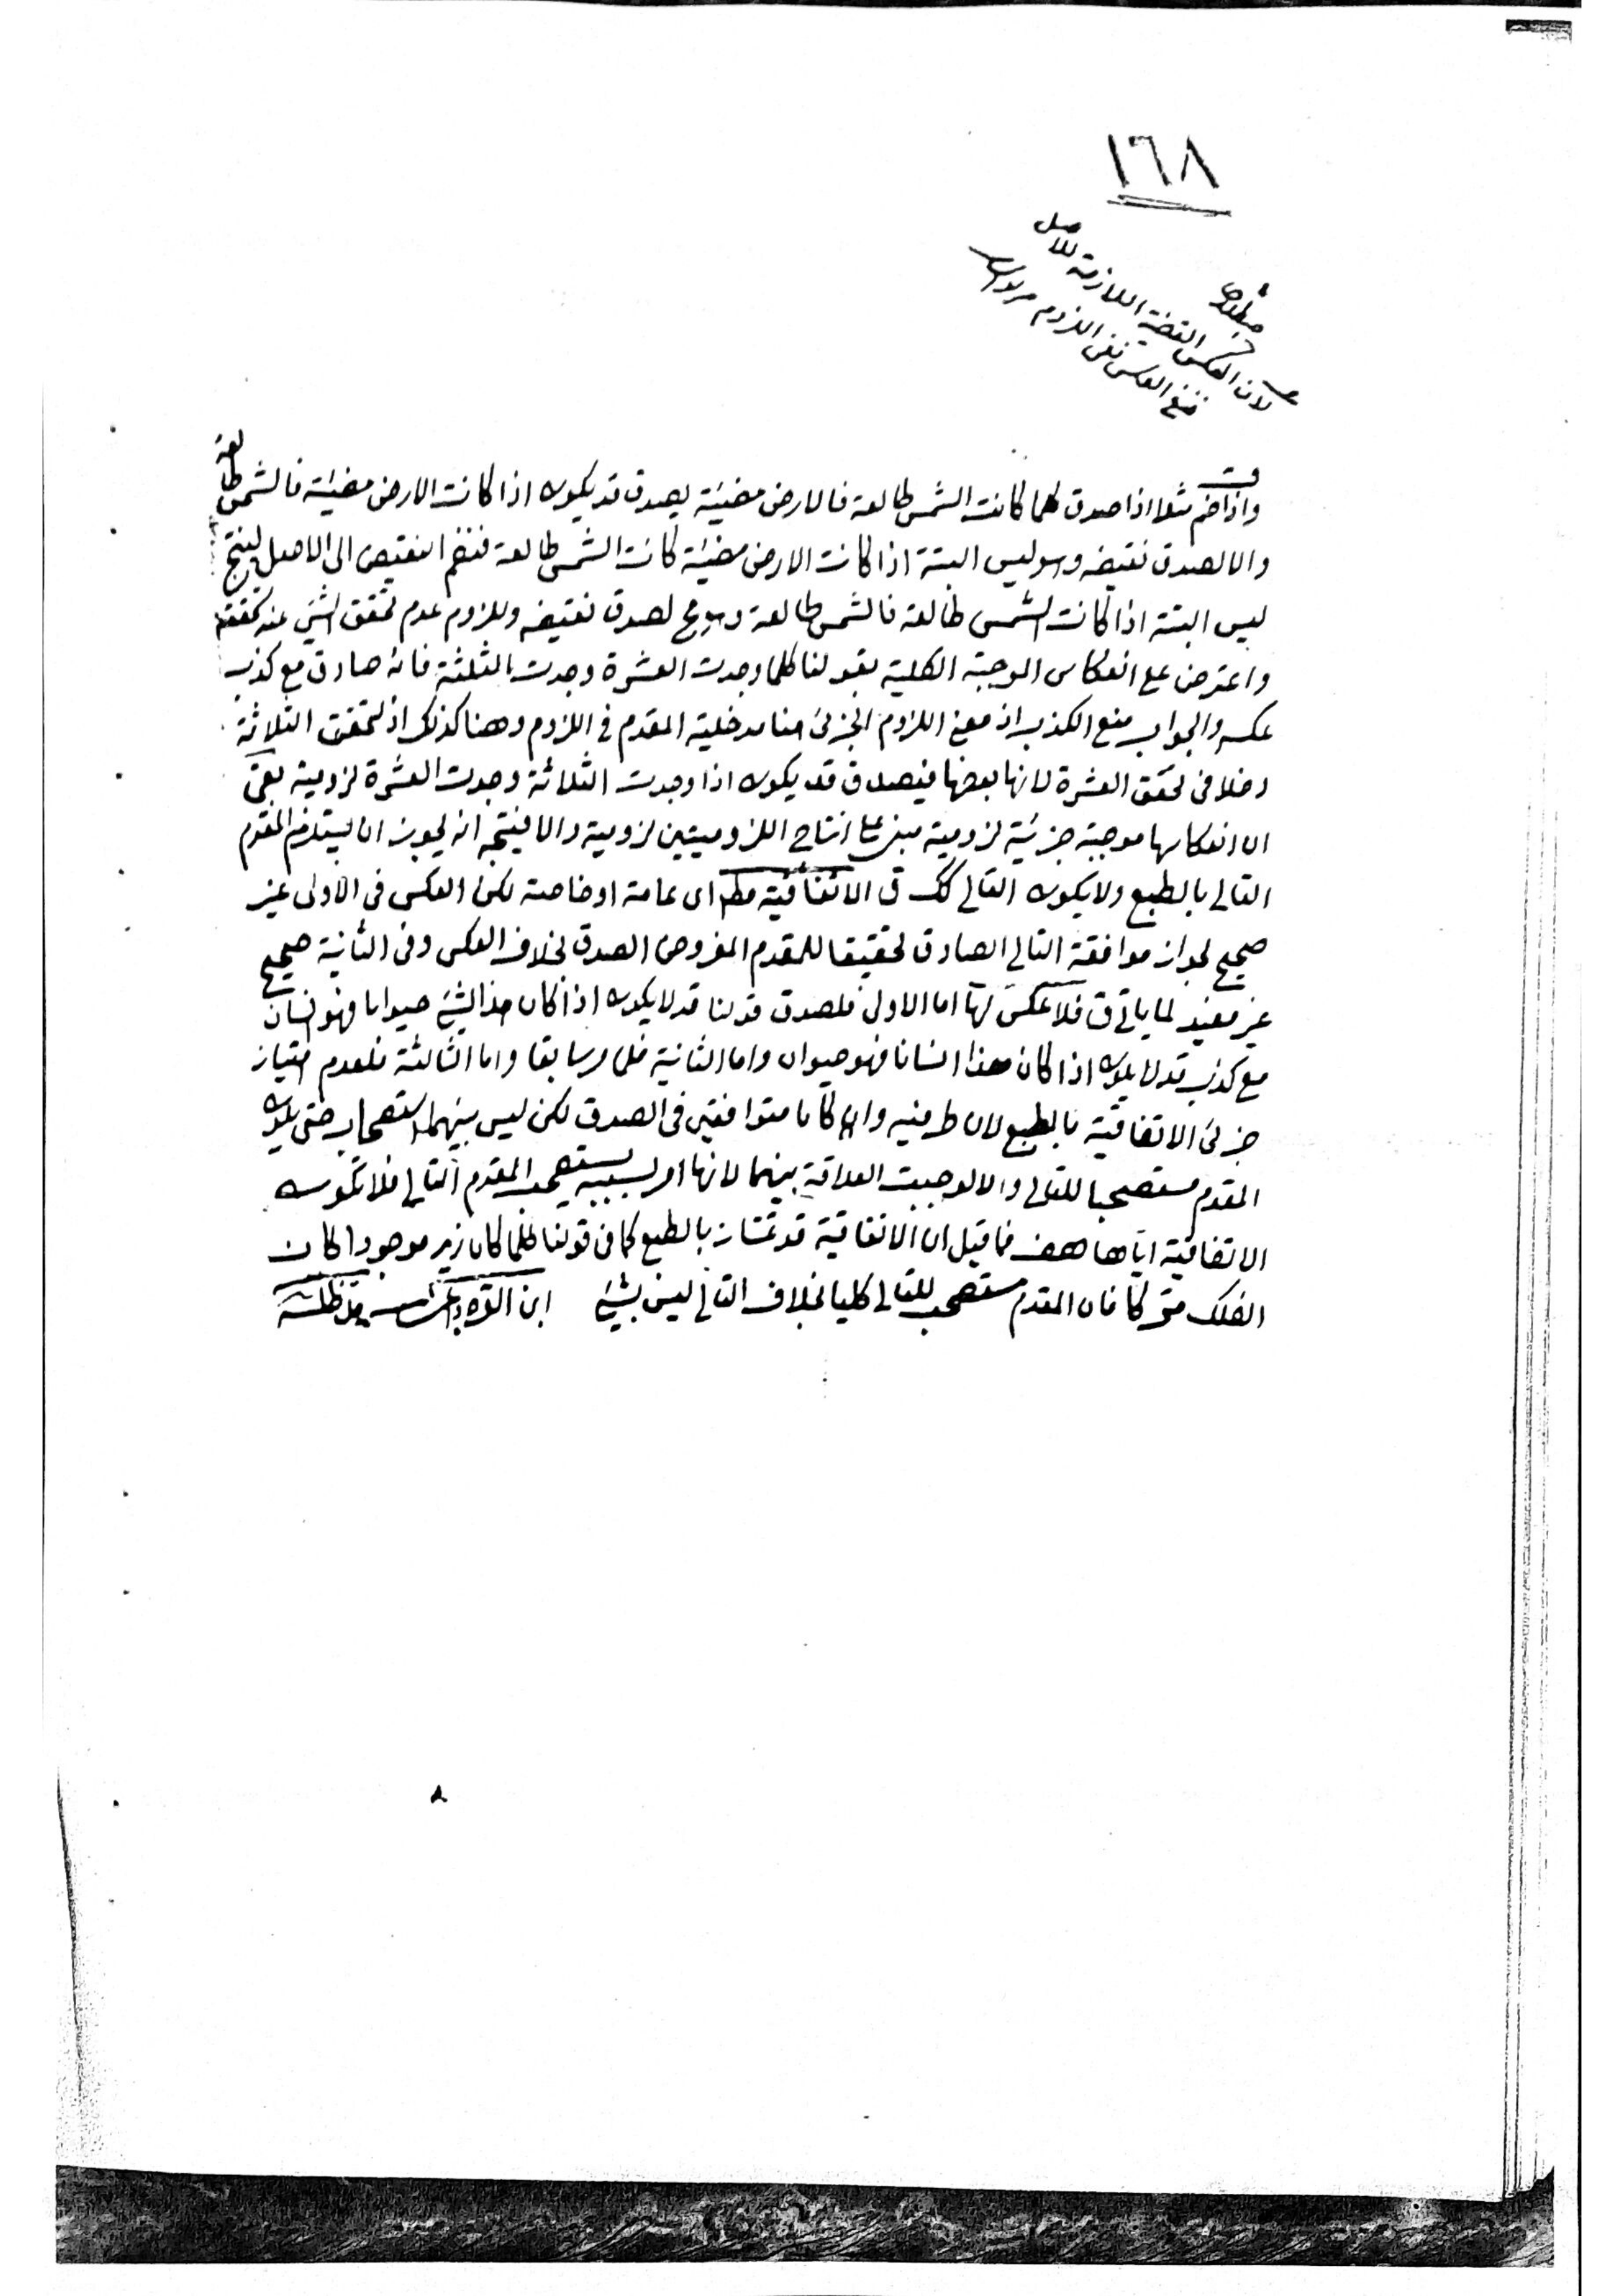 ١٦٨
لان العكس القضية اللازمة للاصل
العكس نفى اللزوم
واذا ضم مثلا اذا صدق كلما كانت الشمس طالعة فالارض مضيئة يصدق قد يكون اذا كانت الارض مضيئة فالشمس طالعة
والا لصدق نقيضه وهو ليس البتة اذا كانت الارض مضيئة كانت الشمس طالعة فنضم النقيض الى الاصل لينتج
ليس البتة اذا كانت الشمس طالعة فالشمس طالعة وهو مح لصدق نقيضه وللزوم عدم تحقق الشئ عند تحققه
واعترض على انعكاس الموجبة الكلية بقولنا كلما وجدت العشرة وجدت الثلثة فانه صادق مع كذب
عكسه والجواب منع الكذب اذ معنى اللزوم الجزئى هنا مدخلية المقدم فى اللزوم وهنا كذلك اذ لتحقق الثلاثة
دخلا فى تحقق العشرة لانها بعضها فيصدق قد يكون اذا وجدت الثلاثة وجدت العشرة لزومية بقى
ان انعكاسها موجبة جزئية لزومية مبنى على انتاج اللزوميتين لزومية والا فيتجه انه يجوز ان يستلزم المقدم
التالى بالطبع ولا يكون التالى كك ق الاتفاقية مطم اى عامة او خاصة لكن العكس فى الاولى غير
صحيح لجواز موافقة التالى الصادق تحقيقا للمقدم المفروض الصدق بخلاف العكس وفى الثانية صحيح
غير مفيد لما ياتى ق فلا عكس لها اما الاولى فلصدق قولنا قد لا يكون اذا كان هذا الشئ حيوانا فهو انسان
مع كذب قد لا يكون اذا كان هذا انسانا فهو حيوان واما الثانية فلما مر سابقا واما الثالثة فلعدم امتياز
جزئى الاتفاقية بالطبع لان طرفيه وان كانا متوافقين فى الصدق لكن ليس بينهما استصحاب حتى يكون
المقدم مستصحبا للتالى والا لوجبت العلاقة بينهما لانها امر بسببه يستصحب المقدم التالى فلا تكون
الاتفاقية اياها هف فما قيل ان الاتفاقية قد تمتاز بالطبع كما فى قولنا كلما كان زيد موجودا كان
الفلك متحركا فان المقدم مستصحب للتالى كليا بخلاف التالى ليس بشئ ابن القره داغى مد ظله